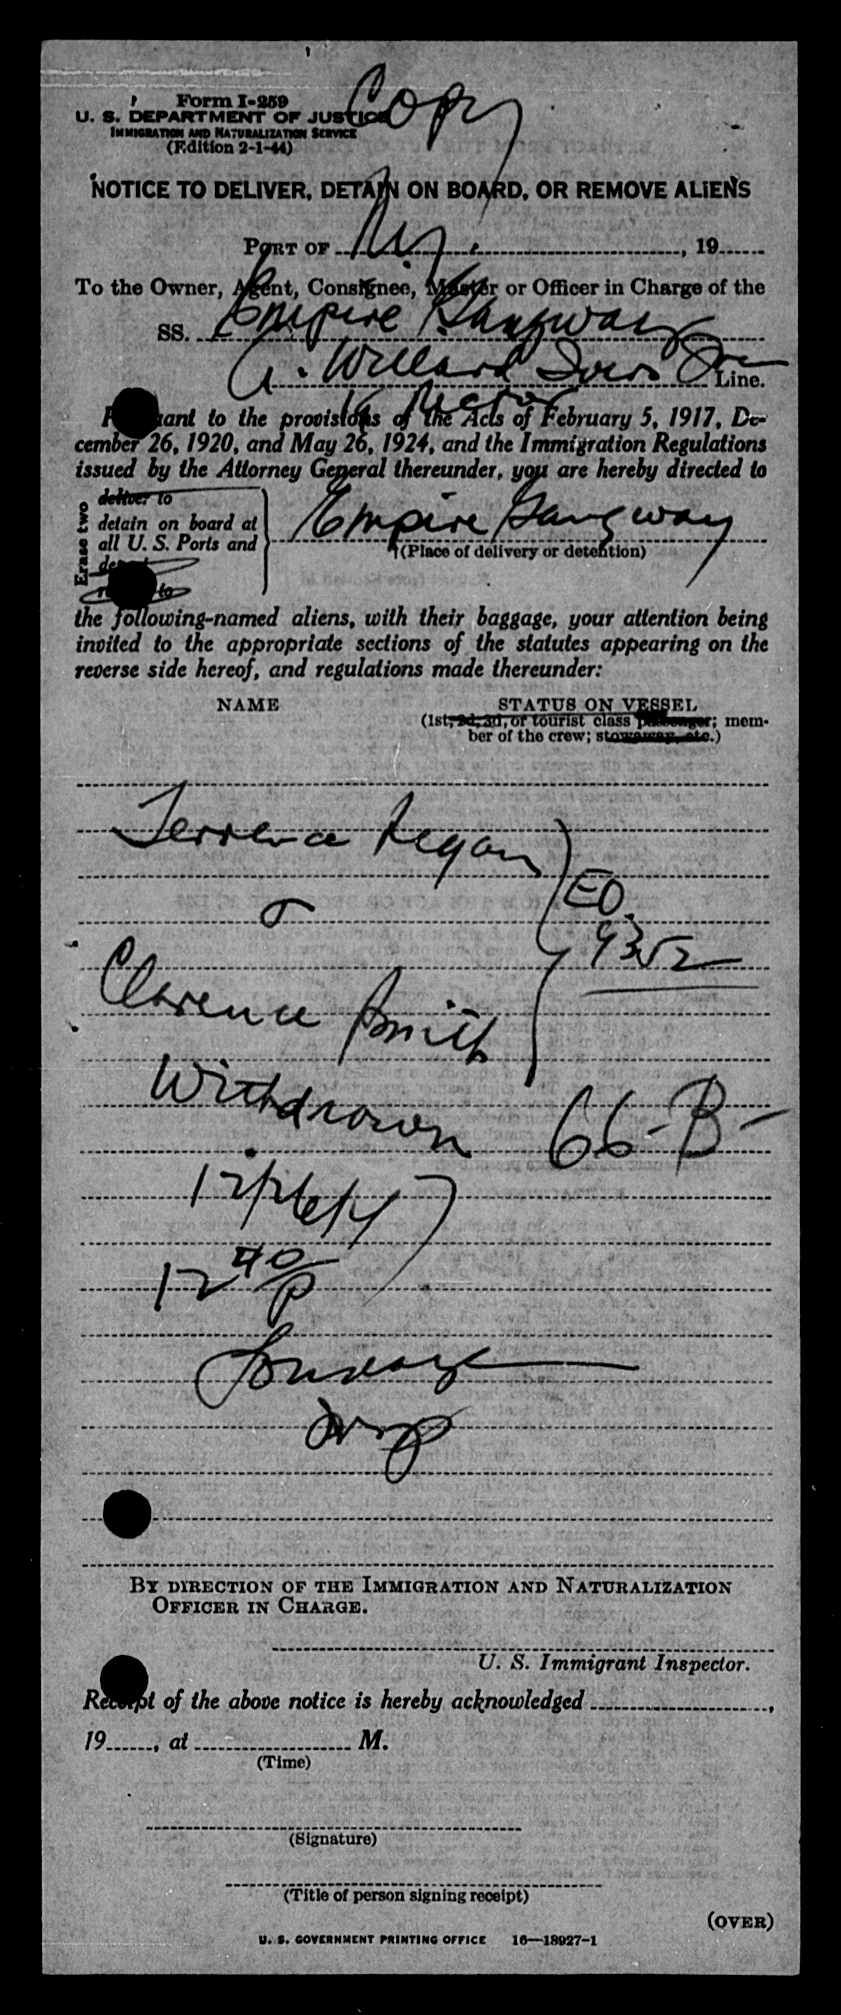 Form I-259
Copy
U. S. DEPARTMENT OF JUSTICE
IMMIGRATION AND NATURALIZATION SERVICE
(Edition 2-1-44)
NOTICE TO DELIVER, DETAIN ON BOARD, OR REMOVE ALIENS
PORT OF N.Y., 19
To the Owner, Agent, Consignee, Master or Officer in Charge of the
SS. Empire Gangway
A. Willard Line.
Pursuant to the provisions of the Acts of February 5, 1917, De-
cember 26, 1920, and May 26, 1924, and the Immigration Regulations
issued by the Attorney General thereunder, you are hereby directed to
Erase two
deliver to
detain on board at
all U. S. Ports and
Empire Gangway
(Place of delivery or detention)
the following-named aliens, with their baggage, your attention being
invited to the appropriate sections of the statutes appearing on the
reverse side hereof, and regulations made thereunder:
NAME STATUS ON VESSEL
(1st, 2d, 3d, or tourist class passenger; mem-
ber of the crew; stowaway, etc.)
Terrence Regan
EO.
9352
Clarence Smith
Withdrawn 66-B-
12/26/47
12 40 P
BY DIRECTION OF THE IMMIGRATION AND NATURALIZATION
OFFICER IN CHARGE.
U. S. Immigrant Inspector.
Receipt of the above notice is hereby acknowledged ,
19 , at M.
(Time)
(Signature)
(Title of person signing receipt)
(OVER)
U. S. GOVERNMENT PRINTING OFFICE 16—18927-1